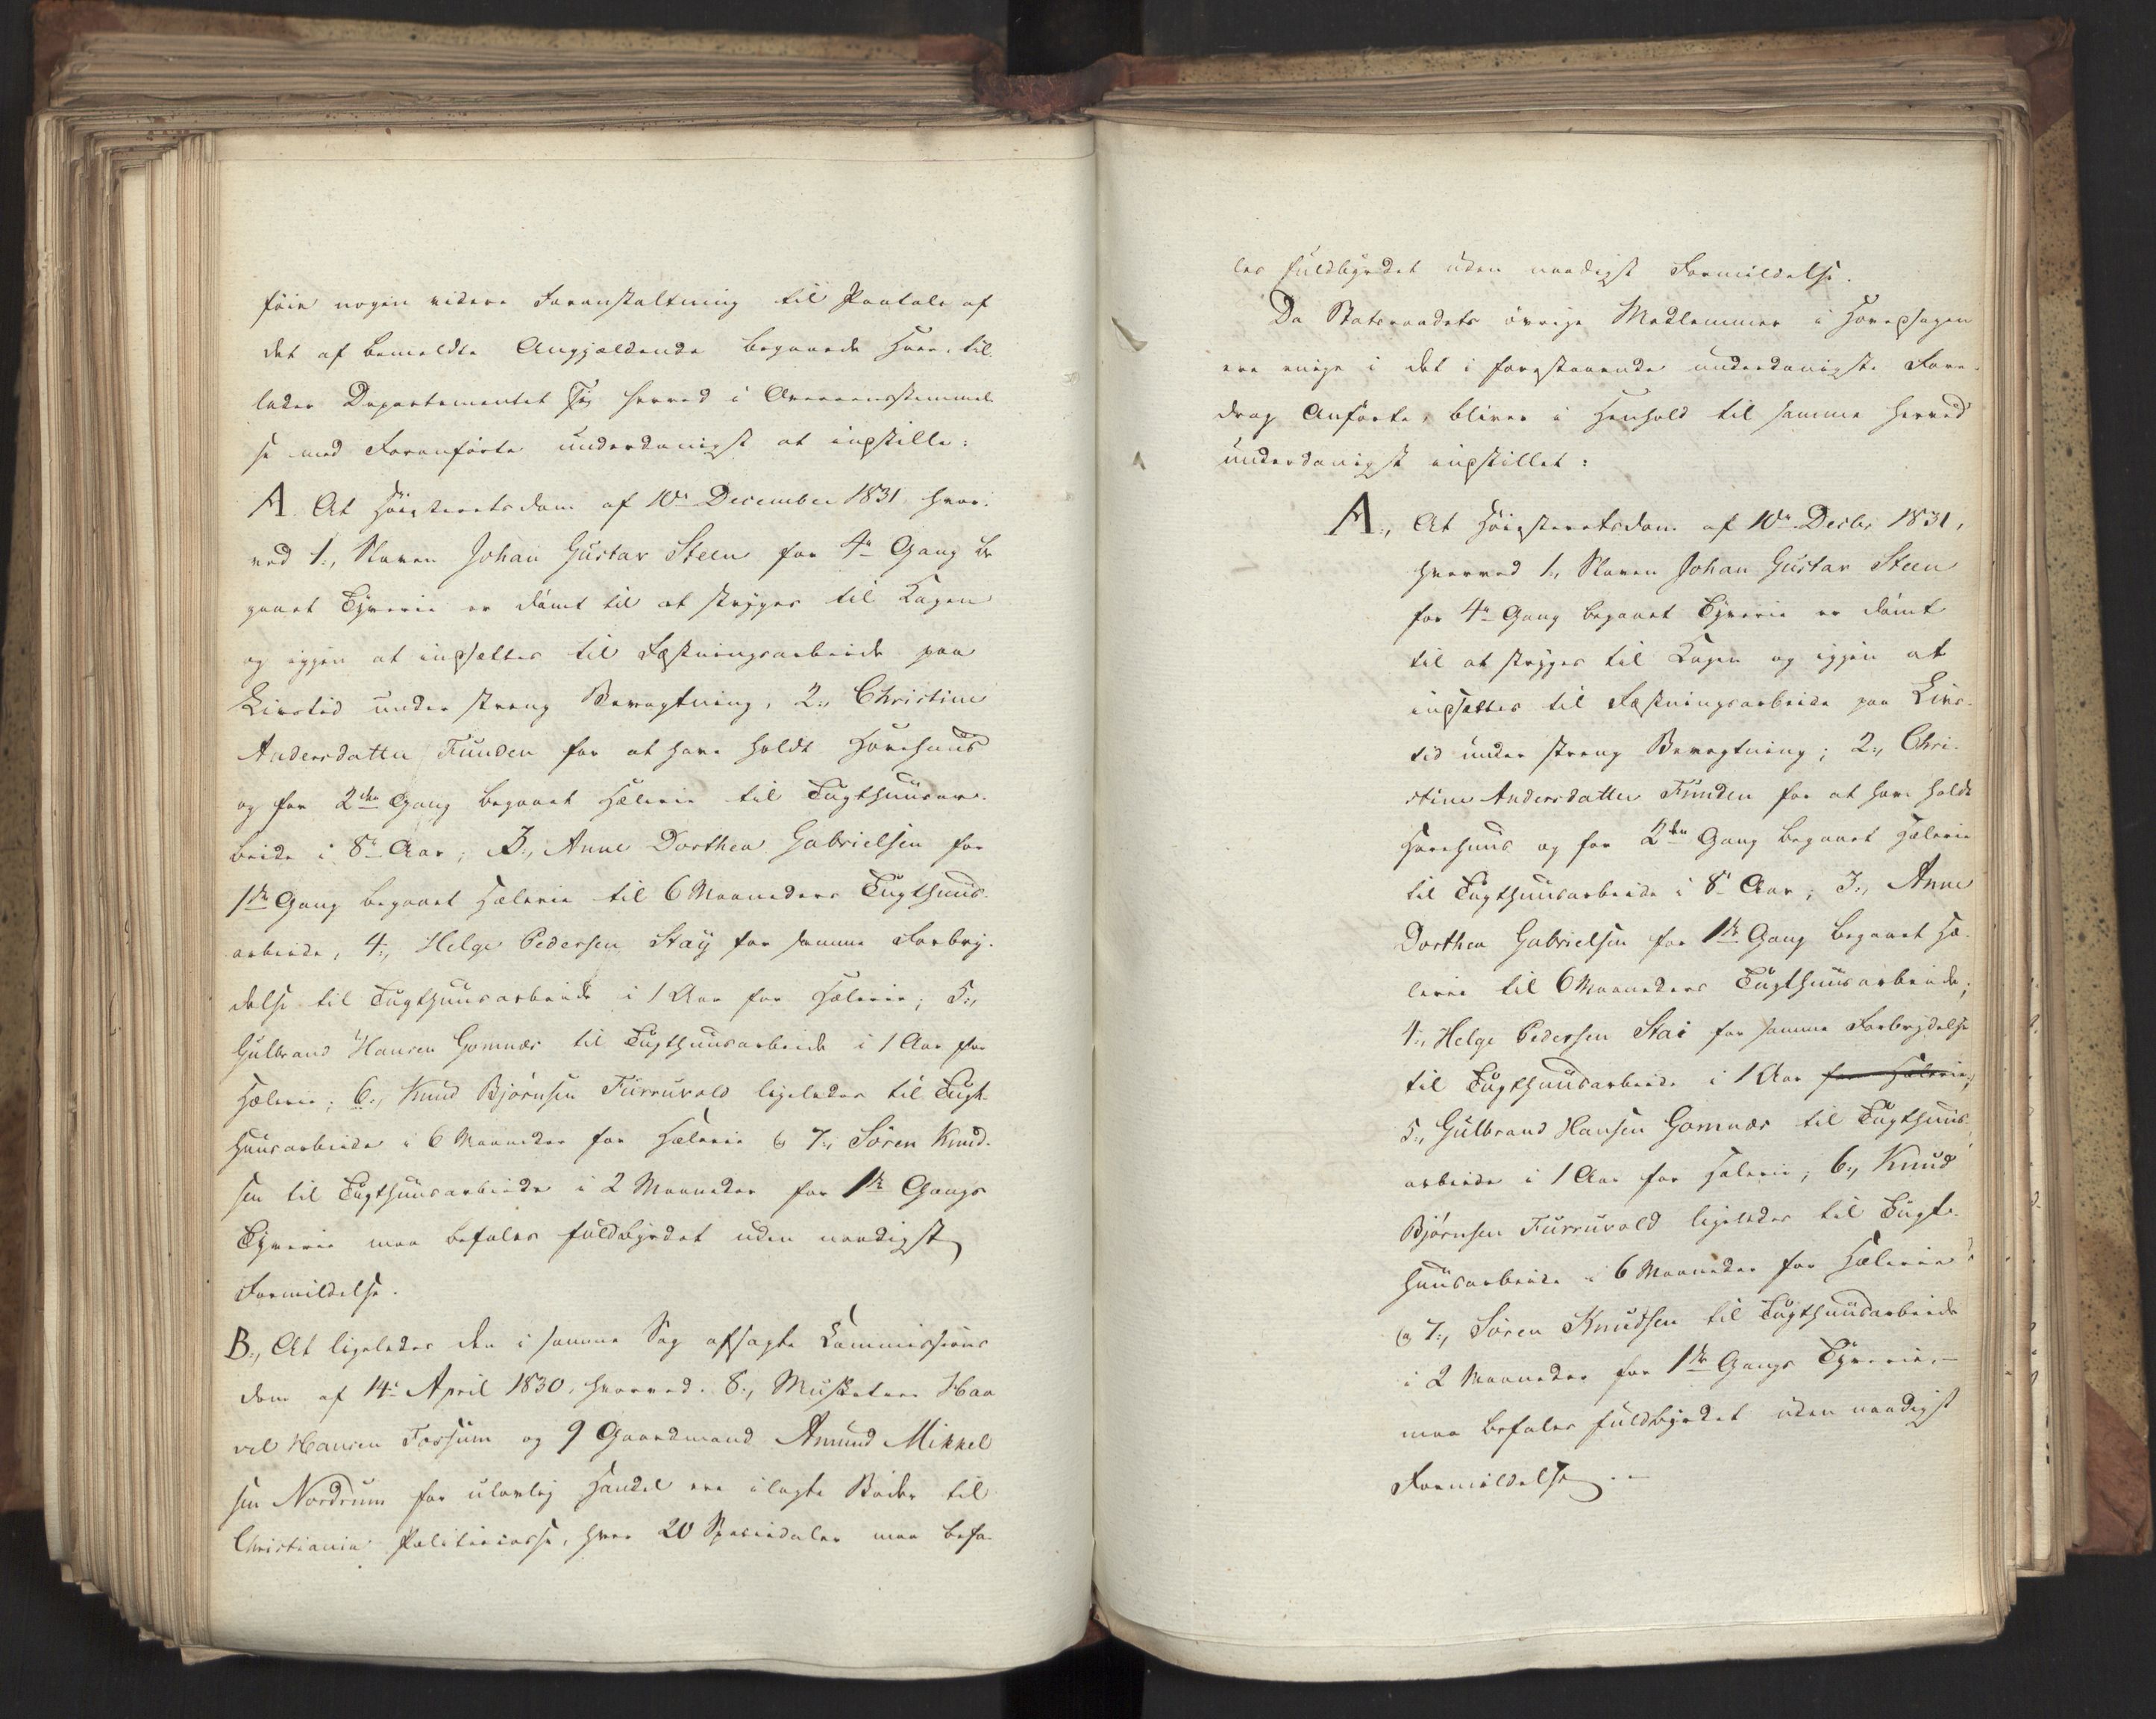 föie nogen videre Foranstaltning til Paatale af
det af bemeldte Angjældende begaaede Hoer, til
lader Departementet Sig herved i Overeensstemmel
se med Foranförte underdanigst at indstille:
A. At Höiesteretsdom af 10de December 1831, hvor-
ved 1., Slaven Johan Gustav Steen for 4de Gang be
gaaet Tyverie er dömt til at stryges til Kagen
og igjen at indsættes til Fæstningsarbeide paa
Livstid under streng Bevogtning, 2., Christine
Andersdatter Funden for at have holdt Horehuus
og for 2den Gang begaaet Hælerie til Tugthuusar-
beide i 8te Aar; 3., Anne Dorthea Gabrielsen for
1ste Gang begaaet Hælerie til 6 Maaneders Tugthuus-
arbeide, 4., Helge Pedersen Staÿ for samme Forbry-
delse til Tugthuusarbeide i 1 Aar for Hælerie; 5.,
Gulbrand Hansen Gomnæs til Tugthuusarbeide i 1 Aar for
Hælerie; 6., Knud Björnsen Furruvald ligeledes til Tugt-
huusarbeide i 6 Maaneder for Hælerie og 7., Sören Knud-
sen til Tugthuusarbeide i 2 Maaneder for 1ste Gangs
Tyverie maa befales fuldbyrdet uden naadigst
Formildelse.
B., At ligeledes den i samme Sag afsagte Commissions
dom af 14de April 1830, hvorved 8., Musketeer Haa
vel Hansen Fossum og 9 Gaardmand Amund Mikkel
sen Nordrum for ulovlig Handel ere ilagte Böder til
Christiania Politiecasse, hver 20 Speciedaler maa befa-
les fuldbyrdet uden naadigst Formildelse.
Da Statsraadets övrige Medlemmer i Hovedsagen
ere enige i det i forestaaende underdanigste Fore-
drag Anförte, bliver i Henhold til samme herved
underdanigst indstillet:
A., At Höiesteretsdom af 10de Decbr 1831,
hvorved 1., Slaven Johan Gustav Steen
for 4de Gang begaaet Tyverie er dömt
til at stryges til Kagen og igjen at
indsættes til Fæstningsarbeide paa Livs-
tid under streng Bevogtning; 2., Chri-
stine Andersdatter Funden for at have holdt
Horehuus og for 2den Gang begaaet Hælerie
til Tugthuusarbeide i 8te Aar; 3., Anne
Dorthea Gabrielsen for 1ste Gang begaaet Hæ-
lerie til 6 Maaneders Tugthuusarbeide;
4., Helge Pedersen Stai for samme Forbrydelse
til Tugthuusarbeide i 1 Aar for Hælerie;
5., Gulbrand Hansen Gomnæs til Tugthuus-
arbeide i 1 Aar for Hælerie; 6., Knud
Björnsen Furruvald ligeledes til Tugt-
huusarbeide i 6 Maaneder for Hælerie
og 7., Sören Knudsen til Tugthuusarbeide
i 2 Maaneder for 1ste Gangs Tyverie, –
maa befales fuldbyrdet uden naadigst
Formildelse. –